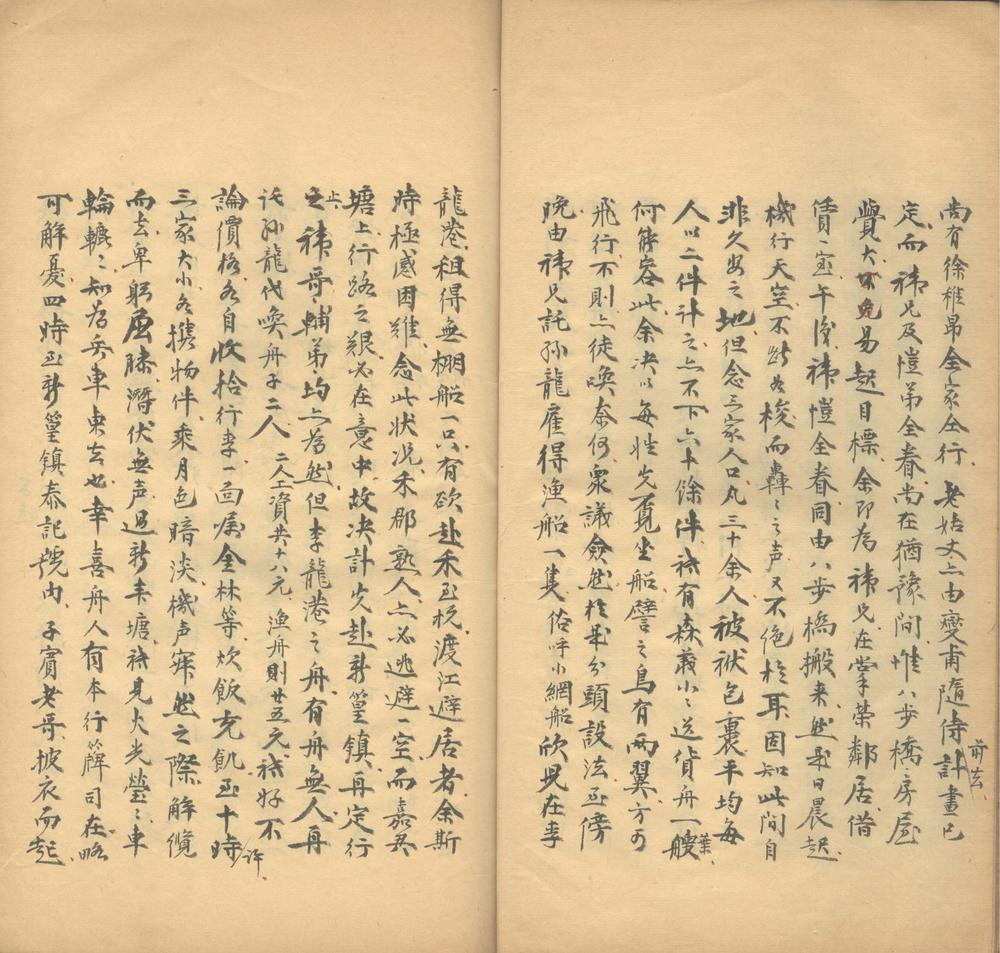 尚有徐稚昂全家仝行老姑丈亦由燮甫隨侍前去計畫已
定而祎兄及愷弟全眷尚在猶豫间惟八步橋房屋
覺大不免易起目標余即為祎兄在掌荣鄰居借
賃一宝午後祎愷全眷同由八步橋搬来然是日晨起
機行天空不啻如梭而轟〻之声又不绝於耳固知此间自
非久安之地但念三家人口丸三十余人被袱包裹平均每
人以二件计之亦不下六十餘件祇有森義小〻送貨舟一艘葉
何能容此余决以每姓先覓坐船譬之鳥有兩翼方可
飛行不則亦徒唤奈何衆議僉然於是分頭設法至傍
晚由祎兄託孫龍雇得漁船一隻俗呼小網船欣規在李
龍港租得無棚船一只有欲赴禾至杭渡江避居者余斯
時極感困難念此状况禾郡熟人亦必逃避一空而嘉尹
塘上行路之艱必在意中故决計先赴新篁镇再定行
止祎哥輔弟均亦為然但李龍港之舟有舟無人再
託孙龍代唤舟子二人二人工資共十八元漁舟則廿五元祇好不
論價格各自收拾行李一面嘱全林等炊飯充飢至十時许
三家大小各攜物件乘月色暗淡機声寂然之際解缆
而去卑躬屈膝潛伏無声過新丰塘祇見火光瑩〻車
輪轆〻知為兵車東去也幸喜舟人有本行篺司在略
可解憂四時至新篁镇泰記號内子賓老哥披衣而起